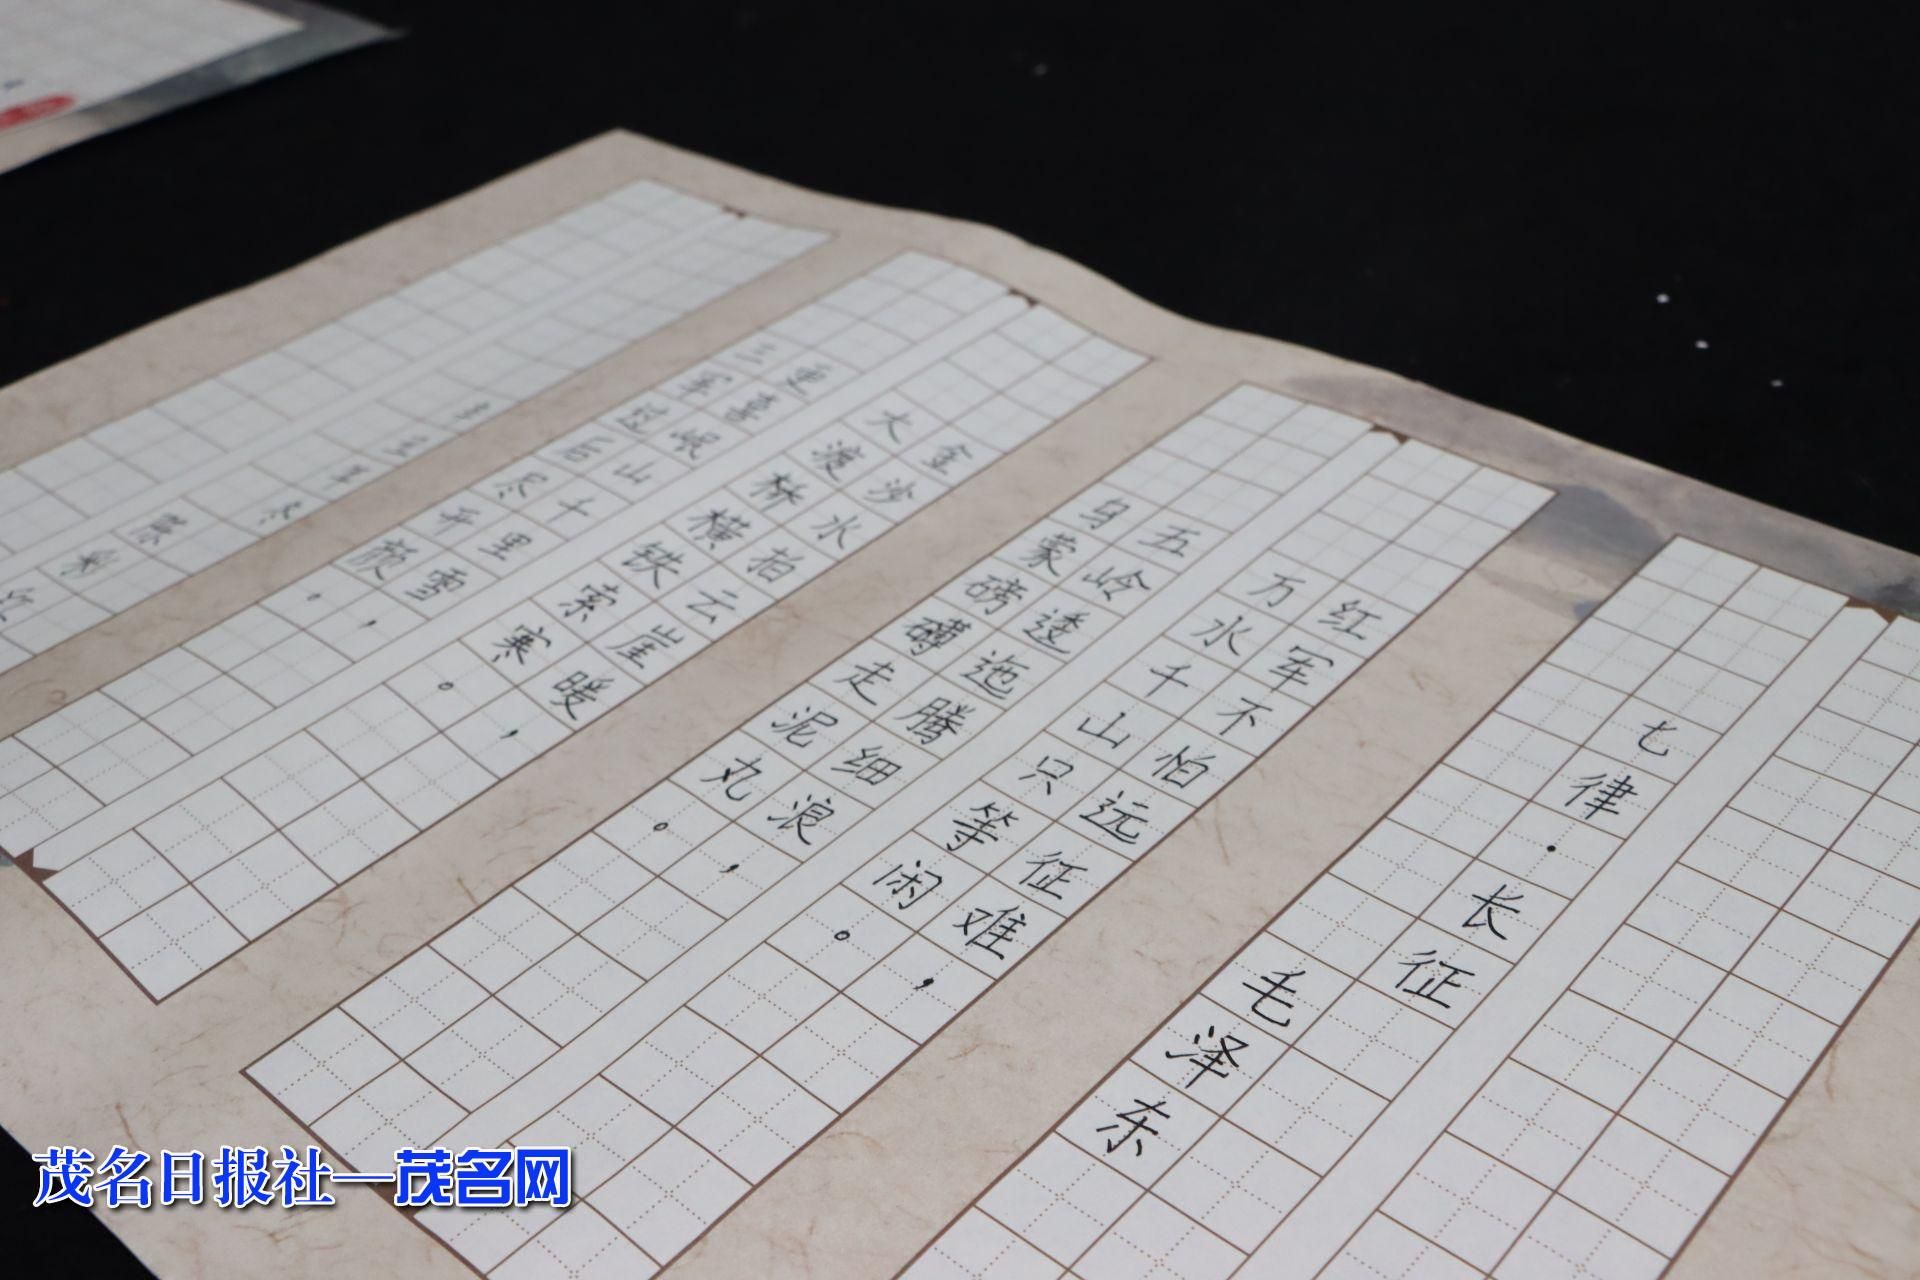 七律·长征
毛泽东
红军不怕远征难，
万水千山只等闲。
五岭逶迤腾细浪，
乌蒙磅礴走泥丸。
金沙水拍云崖暖，
大渡桥横铁索寒。
更喜岷山千里雪，
三军过后尽开颜。
茂名日报社—茂名网